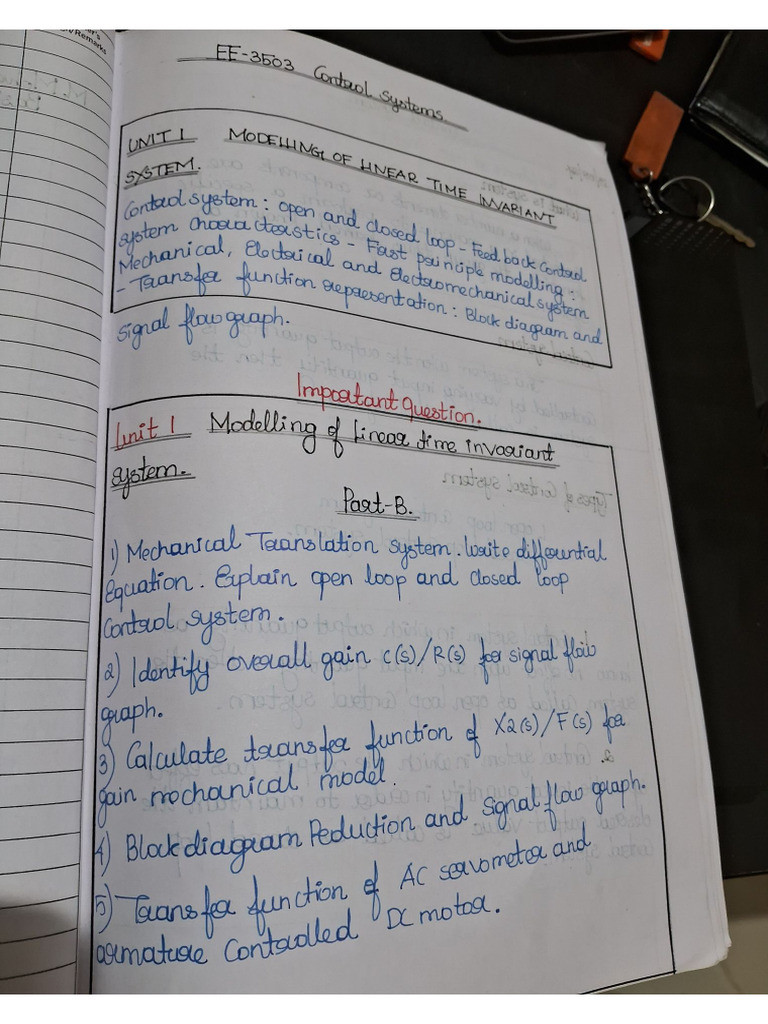 EE-3503 Control Systems
UNIT 1 MODELLING OF LINEAR TIME INVARIANT
SYSTEM.
Control system : open and closed loop - Feed back control
system characteristics - First principle modelling :
Mechanical, Electrical and Electromechanical system
- Transfer function representation : Block diagram and
Signal flow graph.
Important Question.
Unit 1 Modelling of linear time invariant
system.
Part-B.
1) Mechanical Translation system. Write differential
Equation. Explain open loop and closed loop
control system.
2) Identify overall gain C(s)/R(s) for signal flow
graph.
3) Calculate transfer function of X2(s)/F(s) for
gain mechanical model.
4) Block diagram Reduction and Signal flow graph.
5) Transfer function of AC servometer and
armature controlled DC motor.
/Remarks